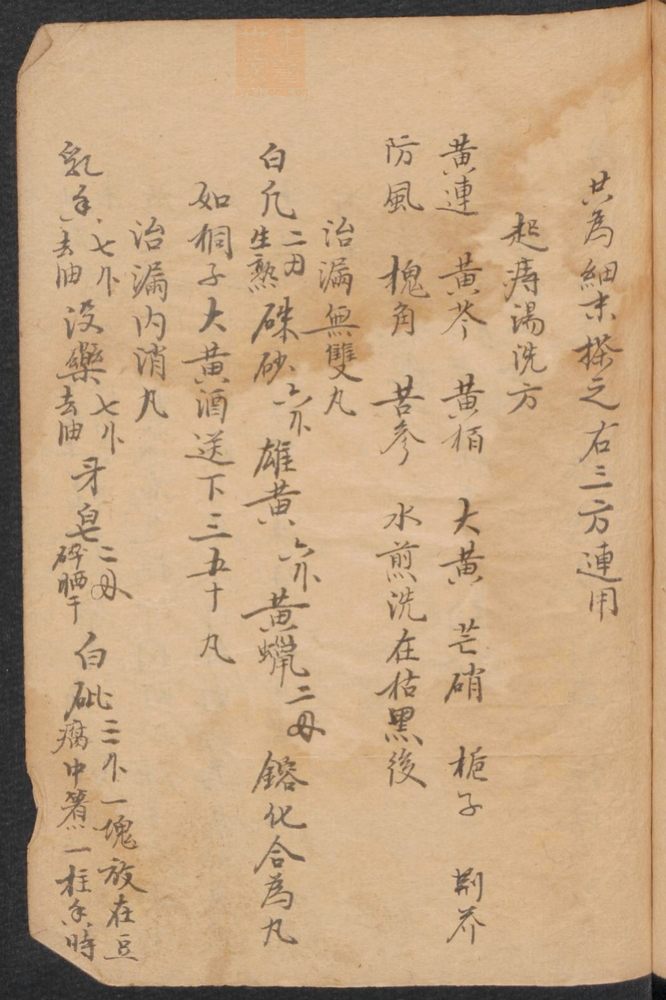 共為細末搽之右三方連用
起痔湯洗方
黃連 黃芩 黃栢 大黃 芒硝 梔子 荆芥
防風 槐角 苦參 水煎洗在枯黑後
治漏無雙丸
白凡二両生熟 硃砂六尒 雄黃六尒 黃蠟二両 鎔化合為丸
如桐子大黃酒送下三五十丸
治漏内消丸
乳香七尒去油 没藥七尒去油 牙皂二両碎晒干 白砒三尒一塊放在豆腐中煮一柱香時